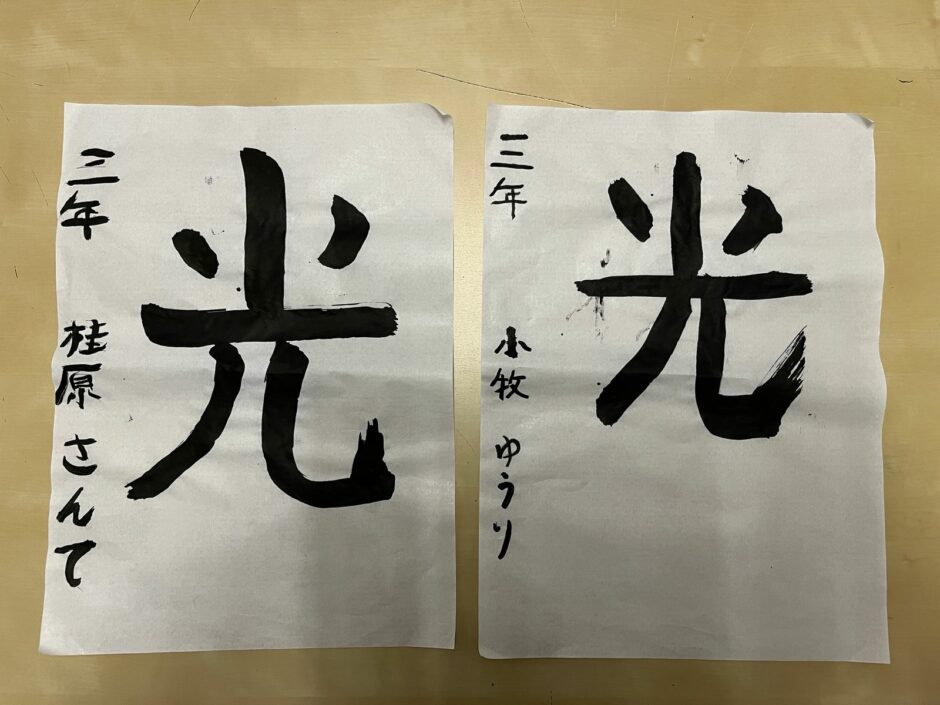 光
三年 桂原 さんて
光
三年 小牧 ゆうり